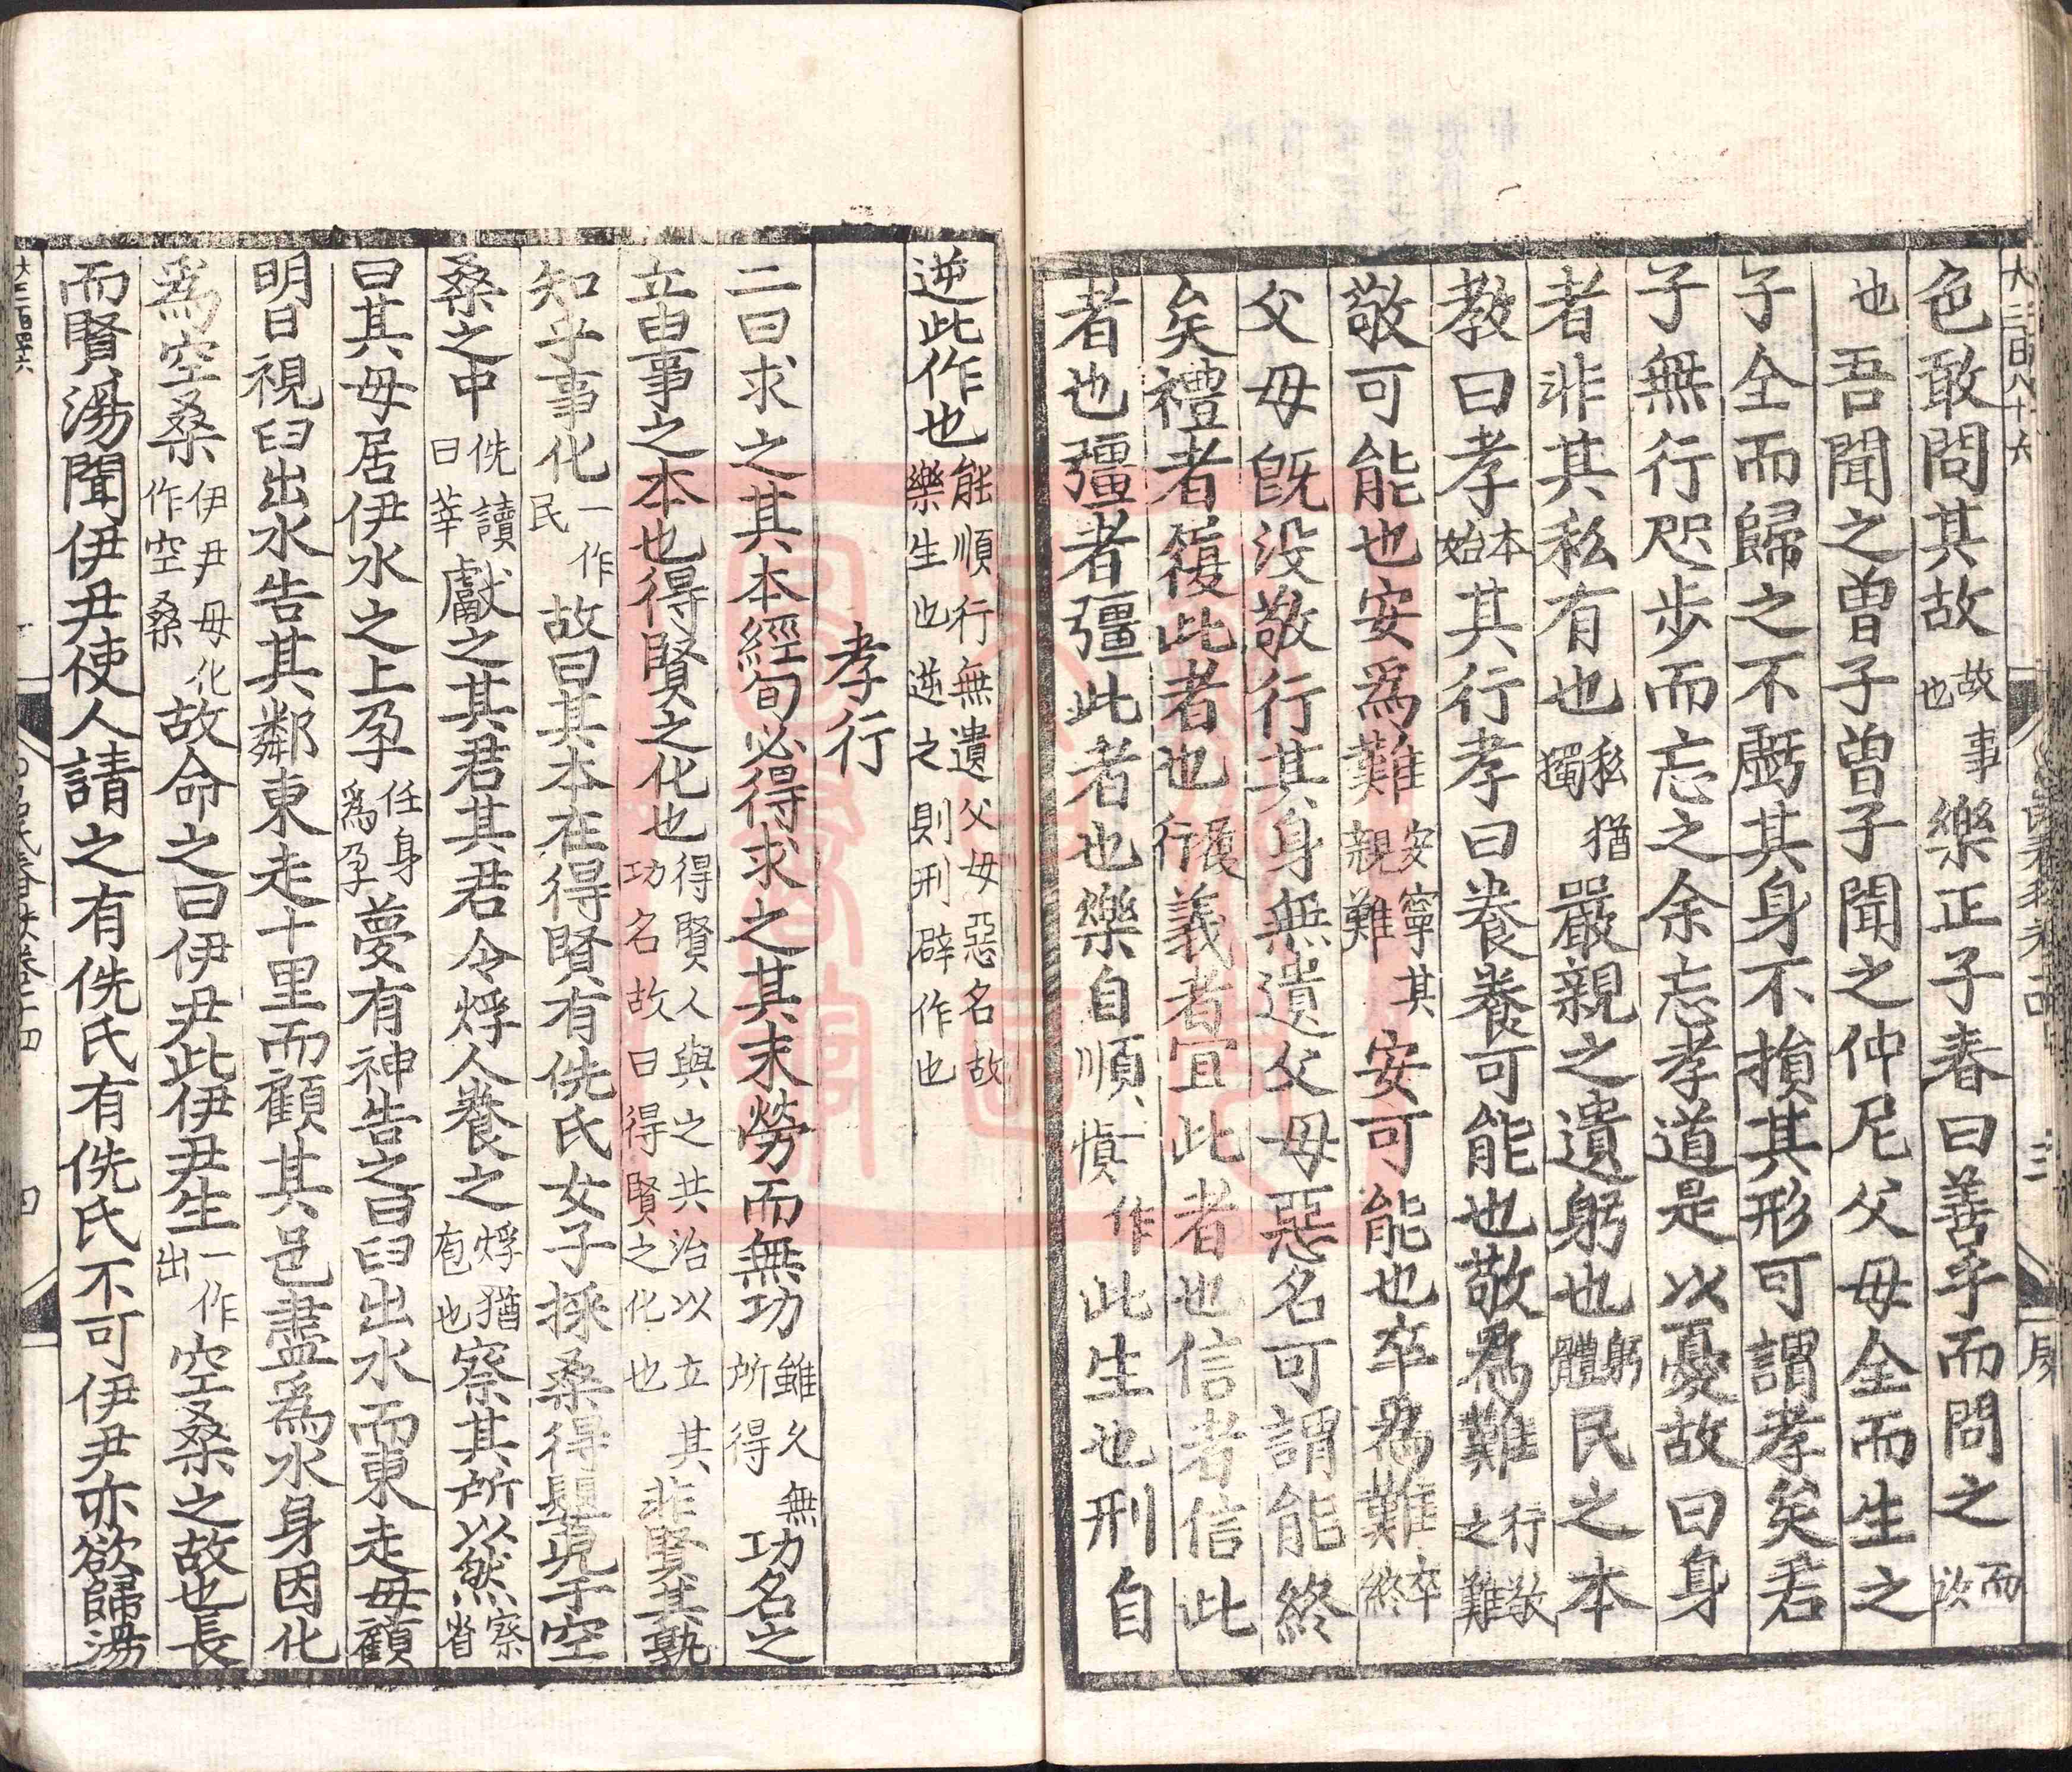 色敢問其故故事也樂正子春曰善乎而問之而汝
也吾聞之曾子曾子聞之仲尼父母全而生之
子全而歸之不虧其身不損其形可謂孝矣君
子無行咫步而忘之余忘孝道是以憂故曰身
者非其私有也私猶獨嚴親之遺躬也躬體民之本
教曰孝本始其行孝曰養養可能也敬爲難行敬之難
敬可能也安爲難安寧其親難安可能也卒爲難卒終
父母既没敬行其身無遺父母惡名可謂能終
矣禮者履此者也履行義者宜此者也信者信此
者也彊者彊此者也樂自順一作慎此生也刑自
逆此作也能順行無遺父母惡名故樂生也逆之則刑辟作也
孝行
二曰求之其本經旬必得求之其末勞而無功雖久無所得功名之
立由事之本也得賢之化也得賢人與之共治以立其功名故曰得賢之化也非賢其孰
知乎事化一作民故曰其本在得賢有侁氏女子採桑得嬰兒于空
桑之中侁讀曰莘獻之其君其君令烰人養之烰猶庖也察其所以然察省
曰其母居伊水之上孕任身爲孕夢有神告之曰臼出水而東走毋顧
明日視臼出水告其鄰東走十里而顧其邑盡爲水身因化
爲空桑伊尹母化作空桑故命之曰伊尹此伊尹生一作出空桑之故也長
而賢湯聞伊尹使人請之有侁氏有侁氏不可伊尹亦欲歸湯
大三百四十六
四